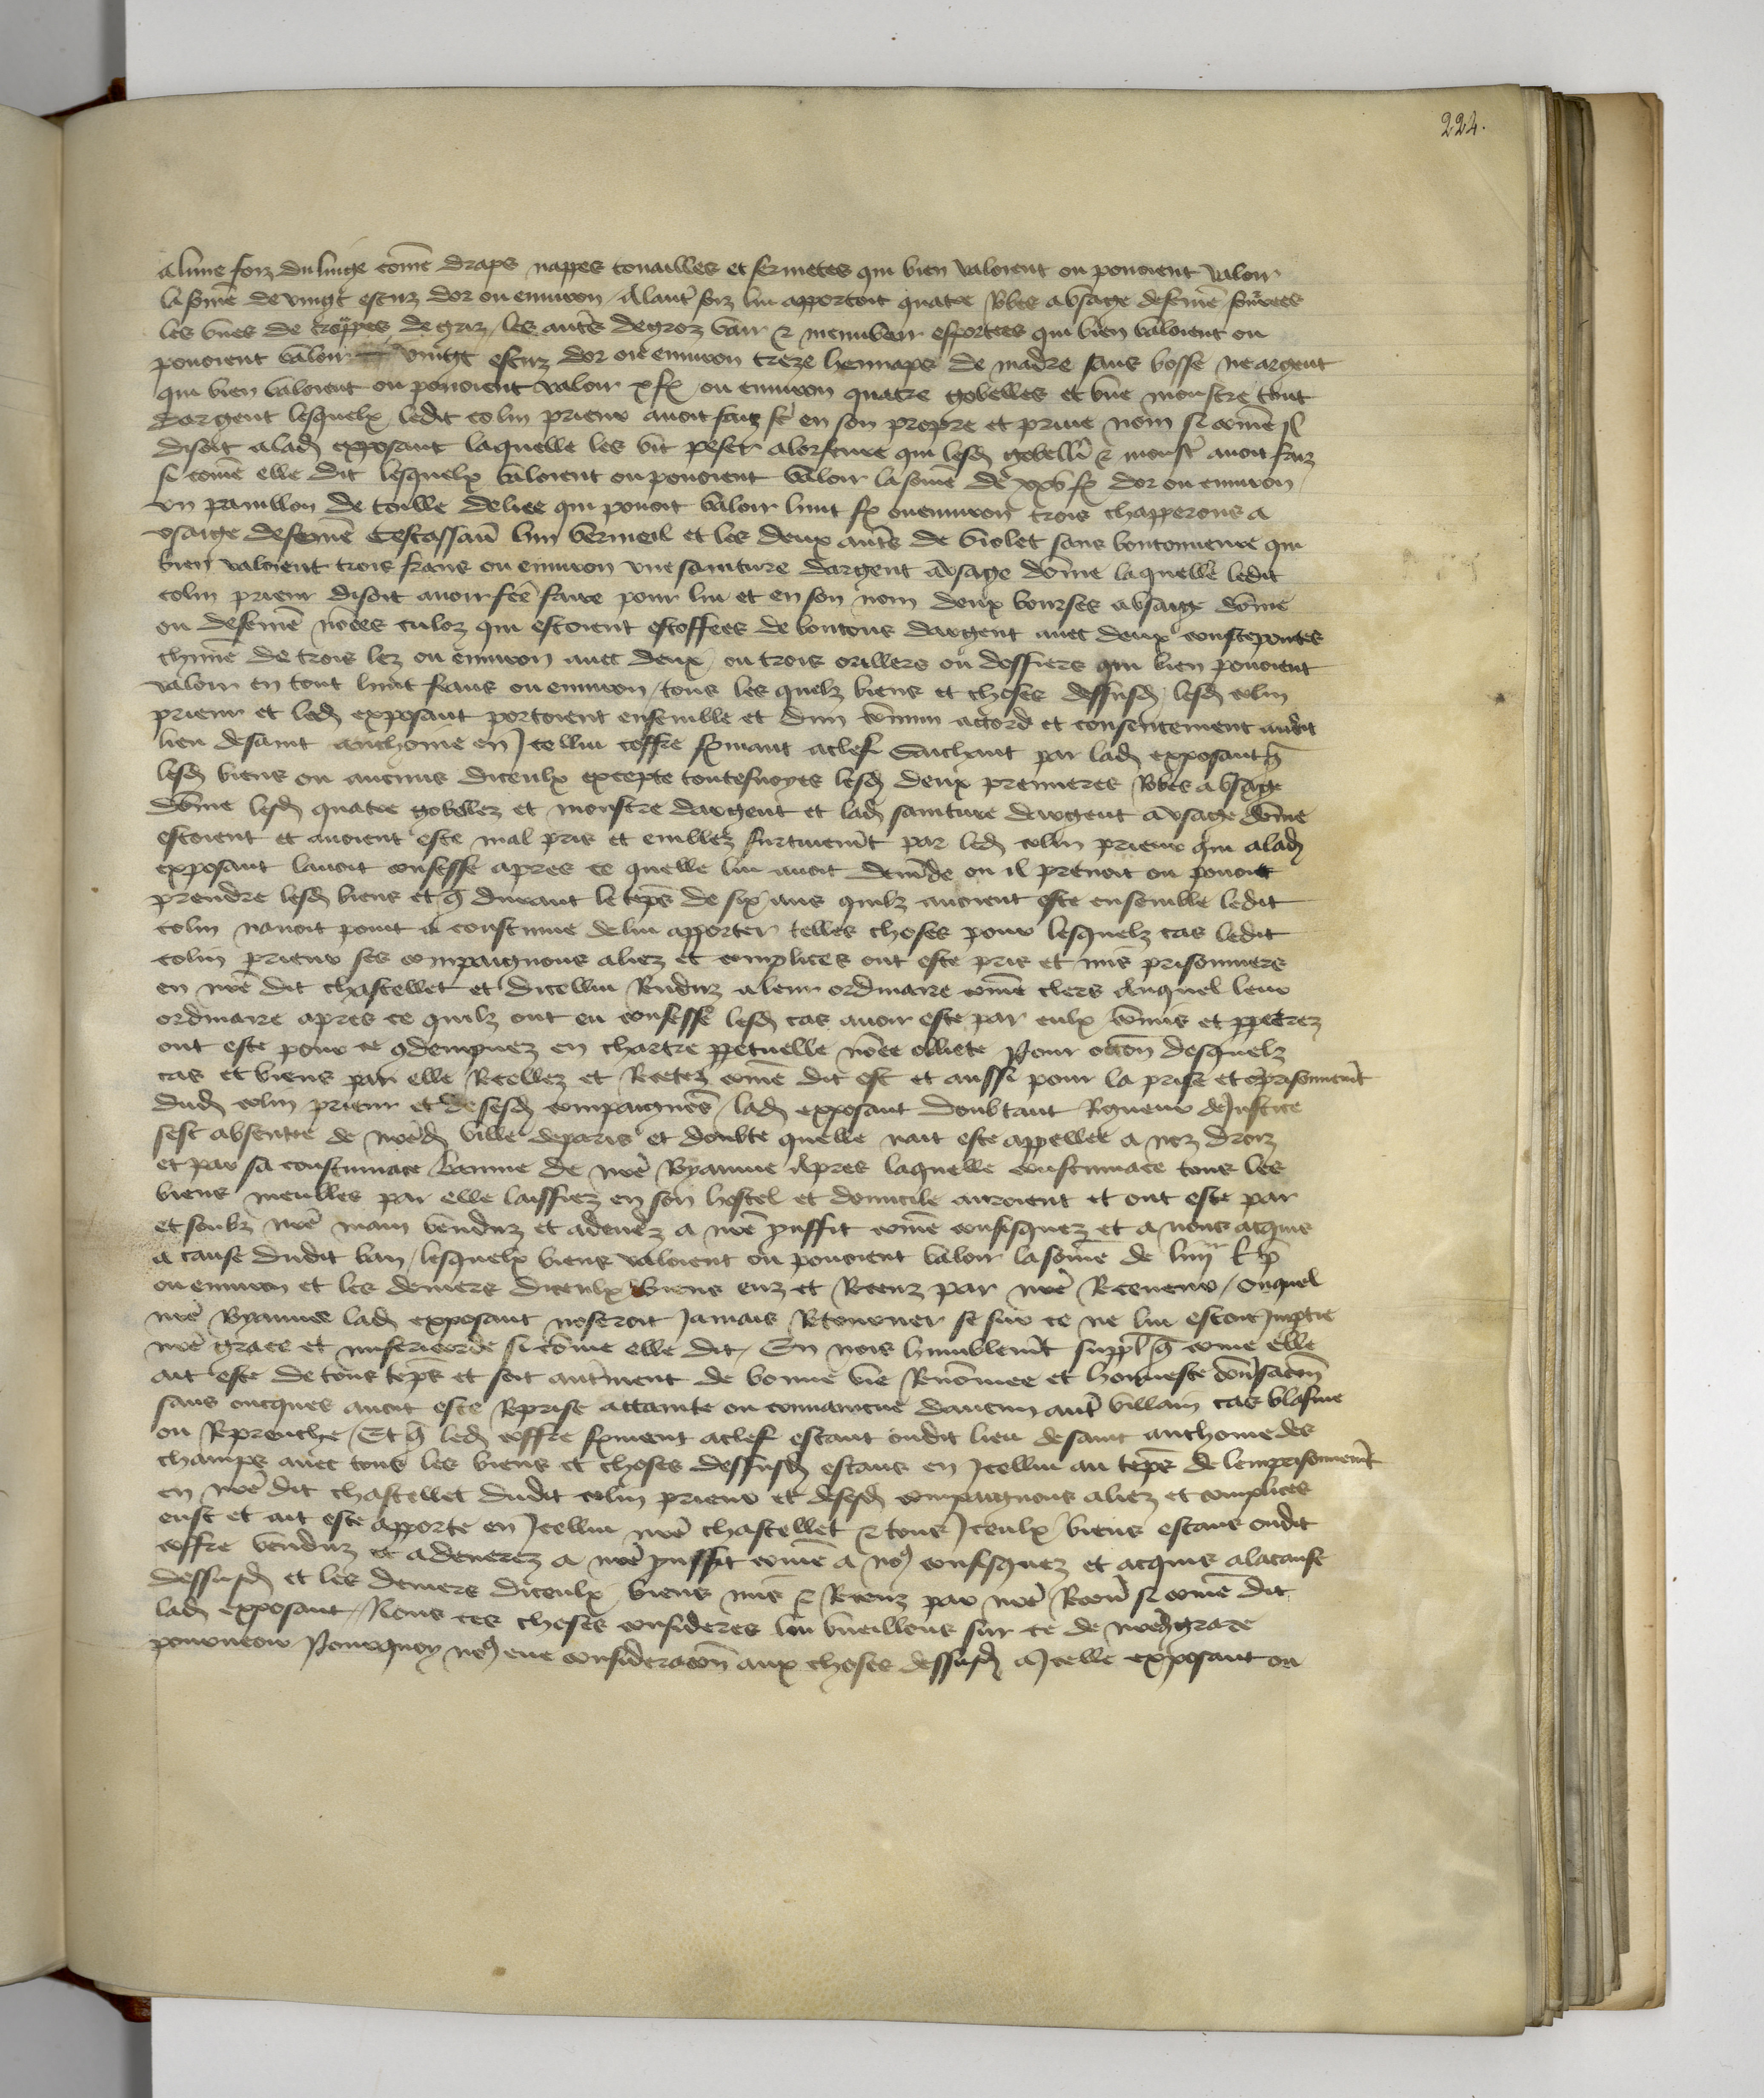 224.
alune foiz du linge come draps nappes touailles et sermetes qui bien valoient ou pouoient valoir
la some de vingt escuz dor ou enuiron / Alautre foiz lui apportoit quatre Robes a usage de feme fourrees
les unes de croppes de griz / les autres de groz vair & menuvair esportees qui bien valoient ou
pouoient valoir vingt escuz dor ou enuiron treze hennaps de madre sans bosse ne argent
qui bien valoient ou pouoient valoir x fx ou enuiron quatre gobelles et une monstre tout
dargent lesquelx ledit colin prieur auoit faiz fe en son propre et priue nom si come Il
disoit a lad exposant laquelle les vit peser alorfeure qui lesd gobell & monstre auoit faiz
si come elle dit lesquelx valoient ou pouoient valoir la some de xxv fx dor ou enuiron /
un pauillon de toille deliee qui pouoit valoir huit fx ou enuiron trois chapperons a
usaige de feme descallate lun vermeil et les deux autres de violet sans boutonneure qui
bien valoient trois frans ou enuiron une sainture dargent a usage dome laquelle ledit
colin prieur disoit auoir fce faire pour lui et en son nom deux bourses a usaige dome
ou de feme noees culoz qui estoient estoffees de boutons dargent auec deux coustepointes
chune de trois lez ou enuiron auec deux ou trois orilliers ou dossiers qui bien pouoient
valoir en tout huit frans ou enuiron / tous les quelz biens et choses dessusd / lesd colin
prieur et lad exposant portoient ensemble et dun comun accord et consentement audit
lieu de saint anthoine en Icellui coffre fermant a clef Saichant par lad exposant q
lesd biens ou aucuns diceulx excepte toutesuoyes lesd deux premieres Robes a usage
dome lesd quatre gobellez et monstre dargent et lad sainture dargent a usage dome
estoient et auoient este mal pris et emblez furtiuemt par led colin prieur qui a lad
exposant lauoit confesse apres ce quelle lui auoit demde ou il prenoit ou pouoit
prendre lesd biens et q durant le temps de six ans quilz auoient este ensemble ledit
colin nauoit point a coustume de lui apporter telles choses pour lesquelz cas ledit
colin prieur ses compaignons aliez et complices ont este pris et mis prisonniers
en nre dit chastellet et dicellui Renduz a leur ordinaire come clers Auquel leur
ordinaire apres ce quilz ont eu confesse lesd cas auoir este par eulx comis et ppetrez
ont este pour ce condempnez en chartre ppetuelle noee oblliete Pour occon desquelz
cas et biens par elle Recellez et Recetez come dit est et aussi pour la prise et emprisonnemt
dud colin prieur et de sesd compaignons / lad exposant doubtant Rigueur de Justice
sest absentee de nred ville de paris et doubte quelle nait este appellee a noz droiz
et par sa coustumace banie de nre Royaume Apres laquelle coustumace tous les
biens meubles par elle laissiez en son hostel et domicile auroient et ont este par
et soubz nre main venduz et adenerez a nre prouffit come confisquez et a nous acquis
a cause dudit ban / lesquelx biens valoient ou pouoient valoir la some de
ou enuiron et les deniers diceulx biens euz et Receuz par nre Receueur / Ouquel
nre Royaume lad exposant noseroit Jamais Retourner se sur ce ne lui estoit Impartie
nre grace et misericorde si come elle dit / En nous humblemt suppl q come elle
ait este de tous temps et soit autrement de bonne vie Renomee et honneste conuersacon
sans oncques auoir este Reprise attainte ou conuaincue daucun autre villain cas blasme
ou Reprouche / Et q led coffre fermant a clef estant oudit lieu de saint anthoine des
champs auec tous les biens et choses dessusd estans en Icellui au temps de lemprisonnemt
en nre dit chastellet dudit colin prieur et desesd compaignons aliez et complices
eust et ait este apporte en Icellui nre chastellet & tous Iceulx biens estans oudit
coffre venduz et adenerez a nre prouffit come a nous confisquez et acquis alacause
dessusd et les deniers diceulx biens mis & Receuz par nre Receur si come dit
lad exposant / Nous ces choses considerees lui vueillons sur ce de nred grace
pourueoir Pourquoy nous eue consideracion aux choses dessusd a Icelle exposant ou